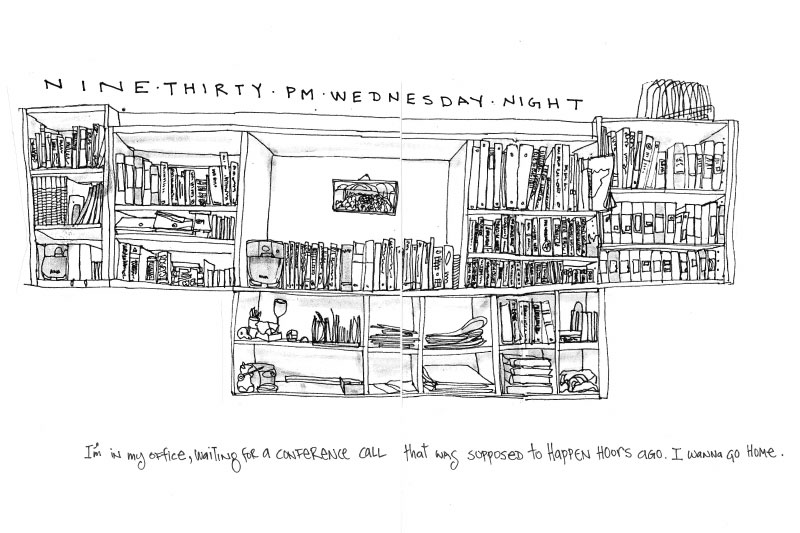 NINE·THIRTY·PM·WEDNESDAY·NIGHT
I'm in my office, waiting for a conference call that was supposed to happen hours ago. I wanna go home.